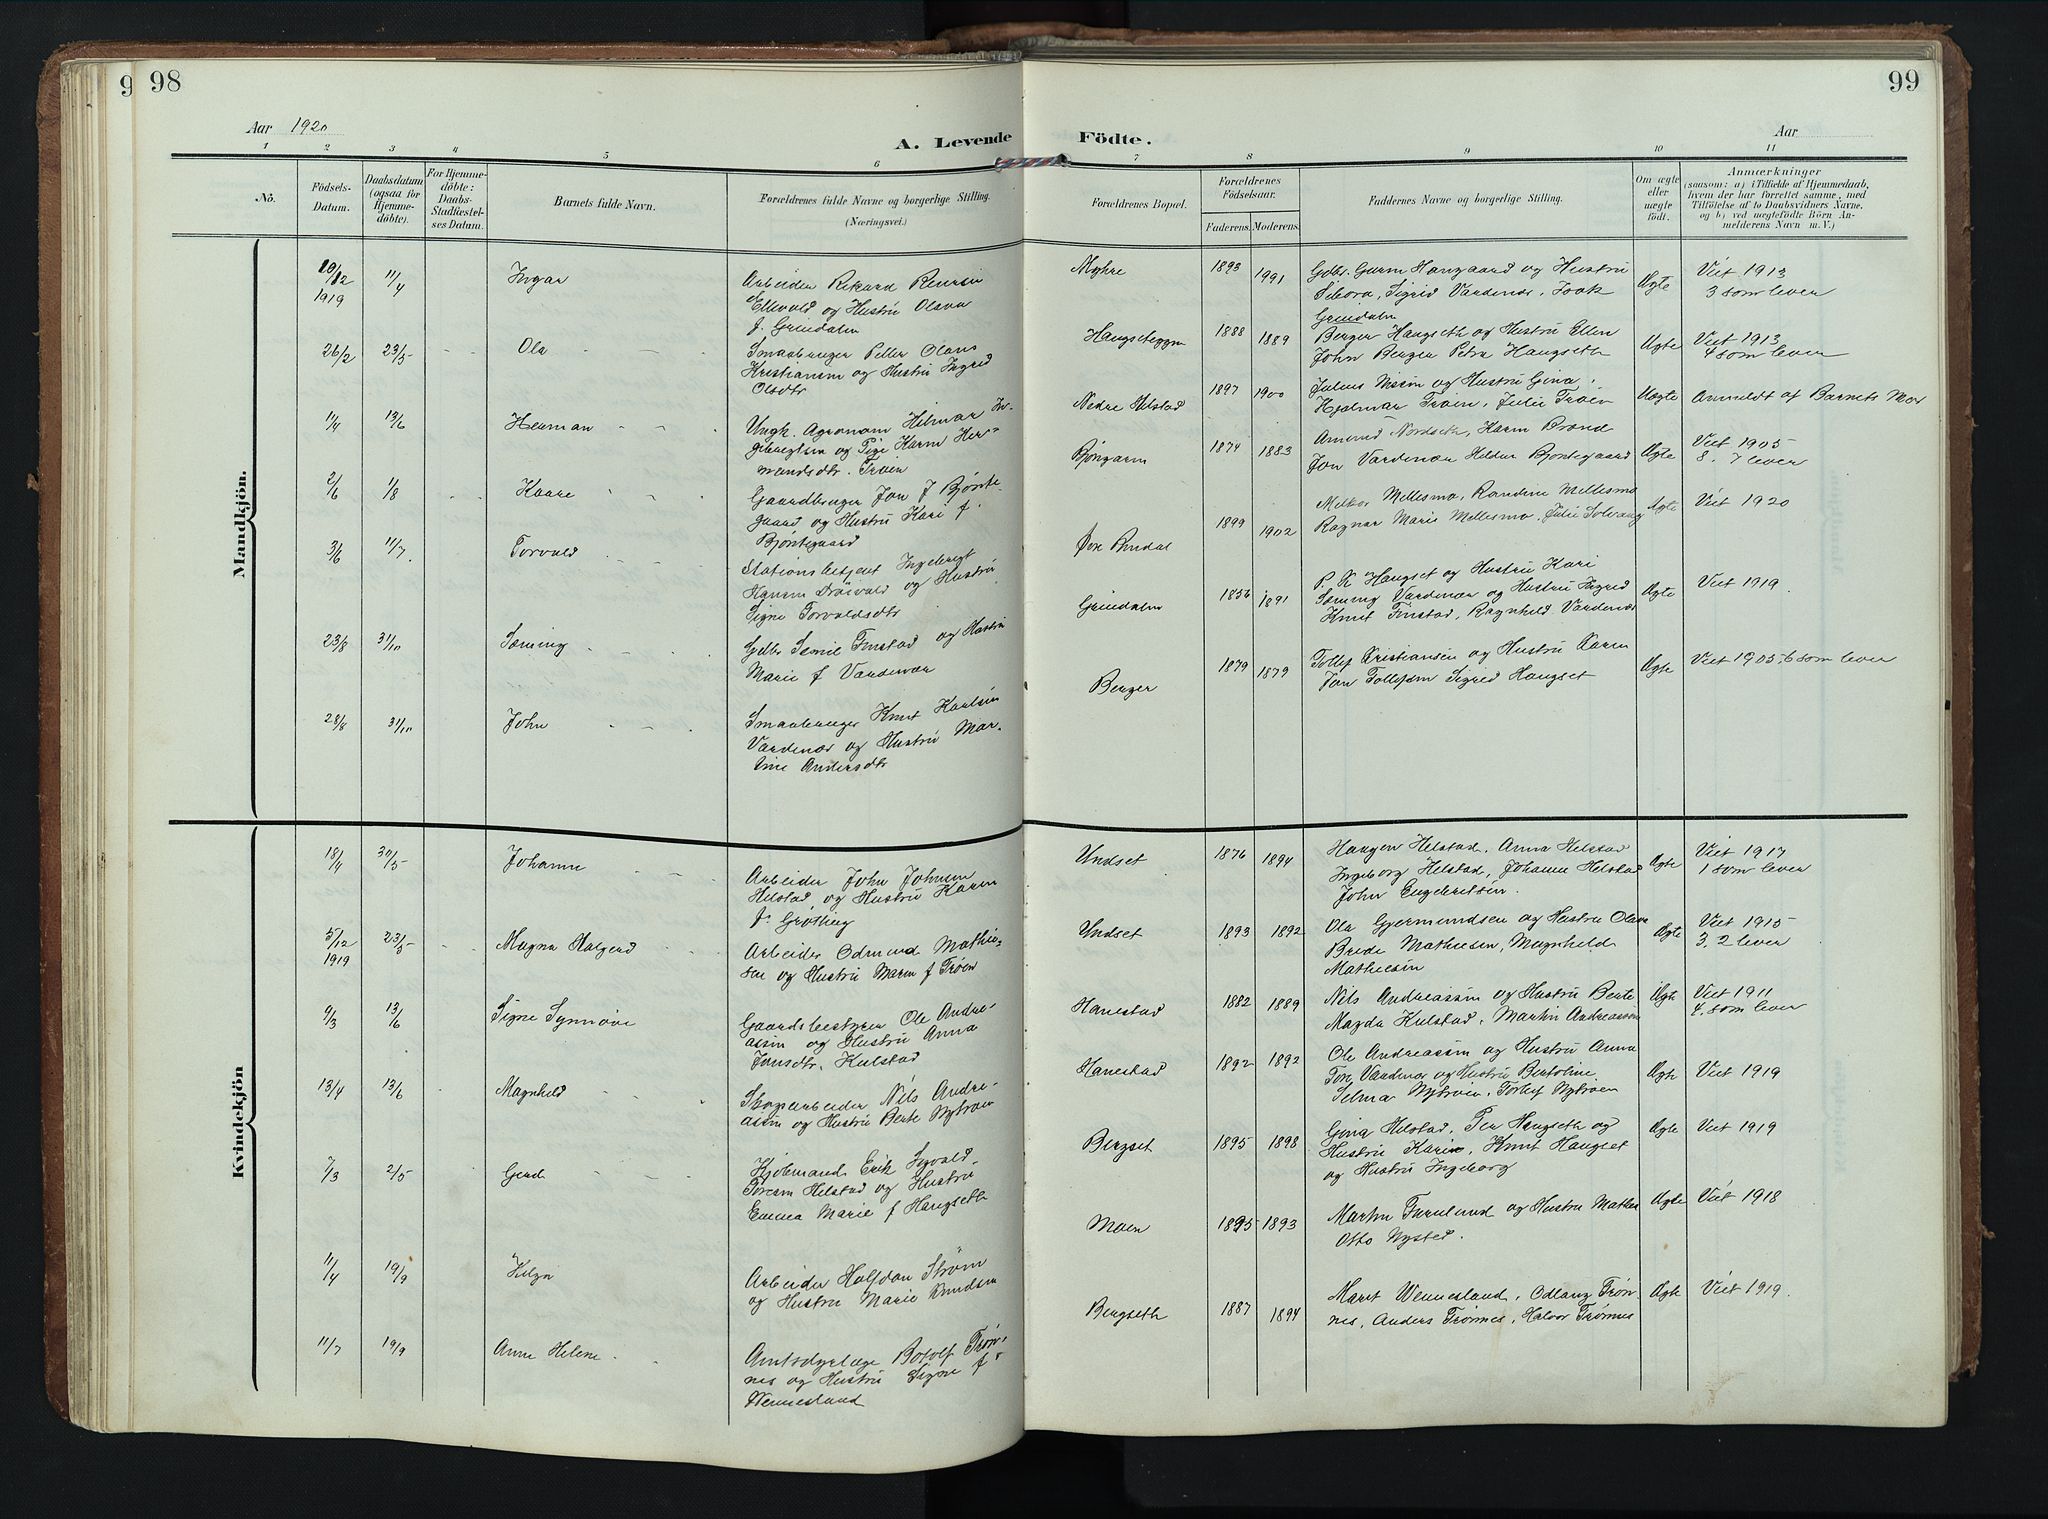 9
98
99
Aar 1920
A. Levende Födte.
Aar
1 2 3 4 5 6 7 8 9 10 11
No.
Födsels-
Datum.
Daabsdatum
(ogsaa for
Hjemme-
döbte).
For Hjemme-
döbte:
Daabs-
Stadfæstel-
ses Datum.
Barnets fulde Navn.
Forældrenes fulde Navne og borgerlige Stilling.
(Næringsvei.)
Forældrenes Bopæl.
Forældrenes
Födselsaar.
Faderens. Moderens.
Faddernes Navne og borgerlige Stilling.
Om ægte
eller
uægte
födt.
Anmærkninger
(saasom: a) i Tilfælde af Hjemmedaab,
hvem der har forrettet samme, med
Tilföielse af to Daabsvidners Navne.
og b) ved uægtefödte Börn An-
melderens Navn m. V.)
Mandkjön.
10/12 1919 11/4 Ingar
Arbeider Rikard
Ellevold og Hustru Olava
f. Grindalen
Myhre 1893 1991
Gdbr. Gurm Haugaard og Hustru
Sibora, Sigrid Vardenær,
Grindalen
Ægte Viet 1913
3 som lever
26/2 23/5 Ola
Smaabruger Petter Olaus
Kristiansen og Hustru Ingrid
Olsdtr
Haugseteggen 1888 1889
Berger Haugseth og Hustru Ellen
John Berger Petra Haugseth
Ægte Viet 1913
4 som lever
11/4 13/6 Herman
Ungk. Agronom Hilmar In-
gebregtsen og Pige Karen Her-
mandsdtr. Trøen
Nedre Hilstad 1897 1900
Julius Nissen og Hustru Gina,
Hjalmar Trøen, Julie Trøen
Uægte Anmeldt af Barnets Mor
2/6 1/8 Kaare
Gaardbruger Jon J Bjønte-
gaard og Hustru Kari f.
Bjøntegaard
1874 1883
Amund Nordseth, Karen Brænd
Jon Vardenær Hilda Bjøntegaard
Ægte Viet 1905
8. 7 lever
3/6 11/7. Torvald
Stationsbetjent Ingebrigt
Hansen Døivold og Hustru
Signe Torvaldsdtr
1899 1902
Melkor Mellesmo, Randine Mellesmo
Ragnar Marie Mellesmo, Julie Solvang
Ægte Viet 1920
23/8 31/10 Sæming
Gdbr Semie Finstad og Hustru
Marie f Vardenær
Grindalen 1856 1891
P. K Haugset og Hustru Kari
Sæming Vardenær og Hustru Sigrid
Knut Finstad, Ragnhild Vardenær
Ægte Viet 1919
28/8 31/10 John
Smaabruger Knut Karlsen
Vardenær og Hustru Mar-
tine Andersdtr
Berger 1879 1879
Tollef Kristiansen og Hustru Karen
Jon Tollefsen Sigrid Haugset
Ægte Viet 1905, 6 som lever
Kvindekjön
18/4 30/5 Johanne
Arbeider John Johnsen
Hilstad, og Hustru Karen
f. Grøtting
Undset 1876 1894
Haagen Hilstad, Anna Hilstad
Ingeborg Hilstad, Johanna Hilstad
John Engebretsen.
Ægte Viet 1917
1 som lever
5/12 1919 23/5 Magna Aasgerd
Arbeider Odmund Mathie-
sen og Hustru Maren f Trøen
Undset 1893 1892
Ola Gjermundsen og Hustru Olava
Brede Mathiesen, Magnhild
Mathiesen
Ægte Viet 1915
3. 2 lever
9/3 13/6 Signe Synnøve
Gaardsbestyrer Ole Andre-
assen og Hustru Anna
Jonsdtr. Kulstad
Hanestad 1882 1889
Nils Andreassen og Hustru Berte
Magda Kulstad, Martin Andreassen
Ægte Viet 1911
4. som lever
13/4 13/6 Magnhild
Skogarbeider Nils Andre-
assen og Hustru Berte Nytrøen
Hanestad 1892 1892
Ole Andreassen og Hustru Anna
Tore Vardenær og Hustru Bertoline
Selma Nytrøen, Torleif Nytrøen
Ægte Viet 1919
7/3 2/5 Gerd
Kjøbmand Erik Sigvald
Toresen Hilstad og Hustru
Emma Marie f Haugseth
Bergset 1895 1898
Gina Hilstad, Per Haugseth og
Hustru Karie, Knut Haugset
og Hustru Ingeborg
Ægte Viet 1919
11/4 19/9
Arbeider Halfdan Strøm
og Hustru Marie Knudsen
Moen 1895 1893
Martin Furulund og Hustru Mathea
Otto Nysted.
Ægte Viet 1918
11/7 19/9 Anne Helene
Amtsdyrlæge Botolf Trøn-
nes og Hustru Signe f.
Wennesland
Bergseth 1887 1894
Marit Wennesland, Odlaug Trøn-
nes, Anders Trønnes, Halvor Trønnes
Ægte Viet 1919.